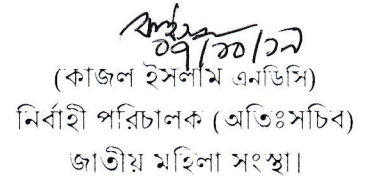 ০৭/১০/১৯
(কাজল ইসলাম এনডিসি)
নির্বাহী পরিচালক (অতিঃসচিব)
জাতীয় মহিলা সংস্থা।